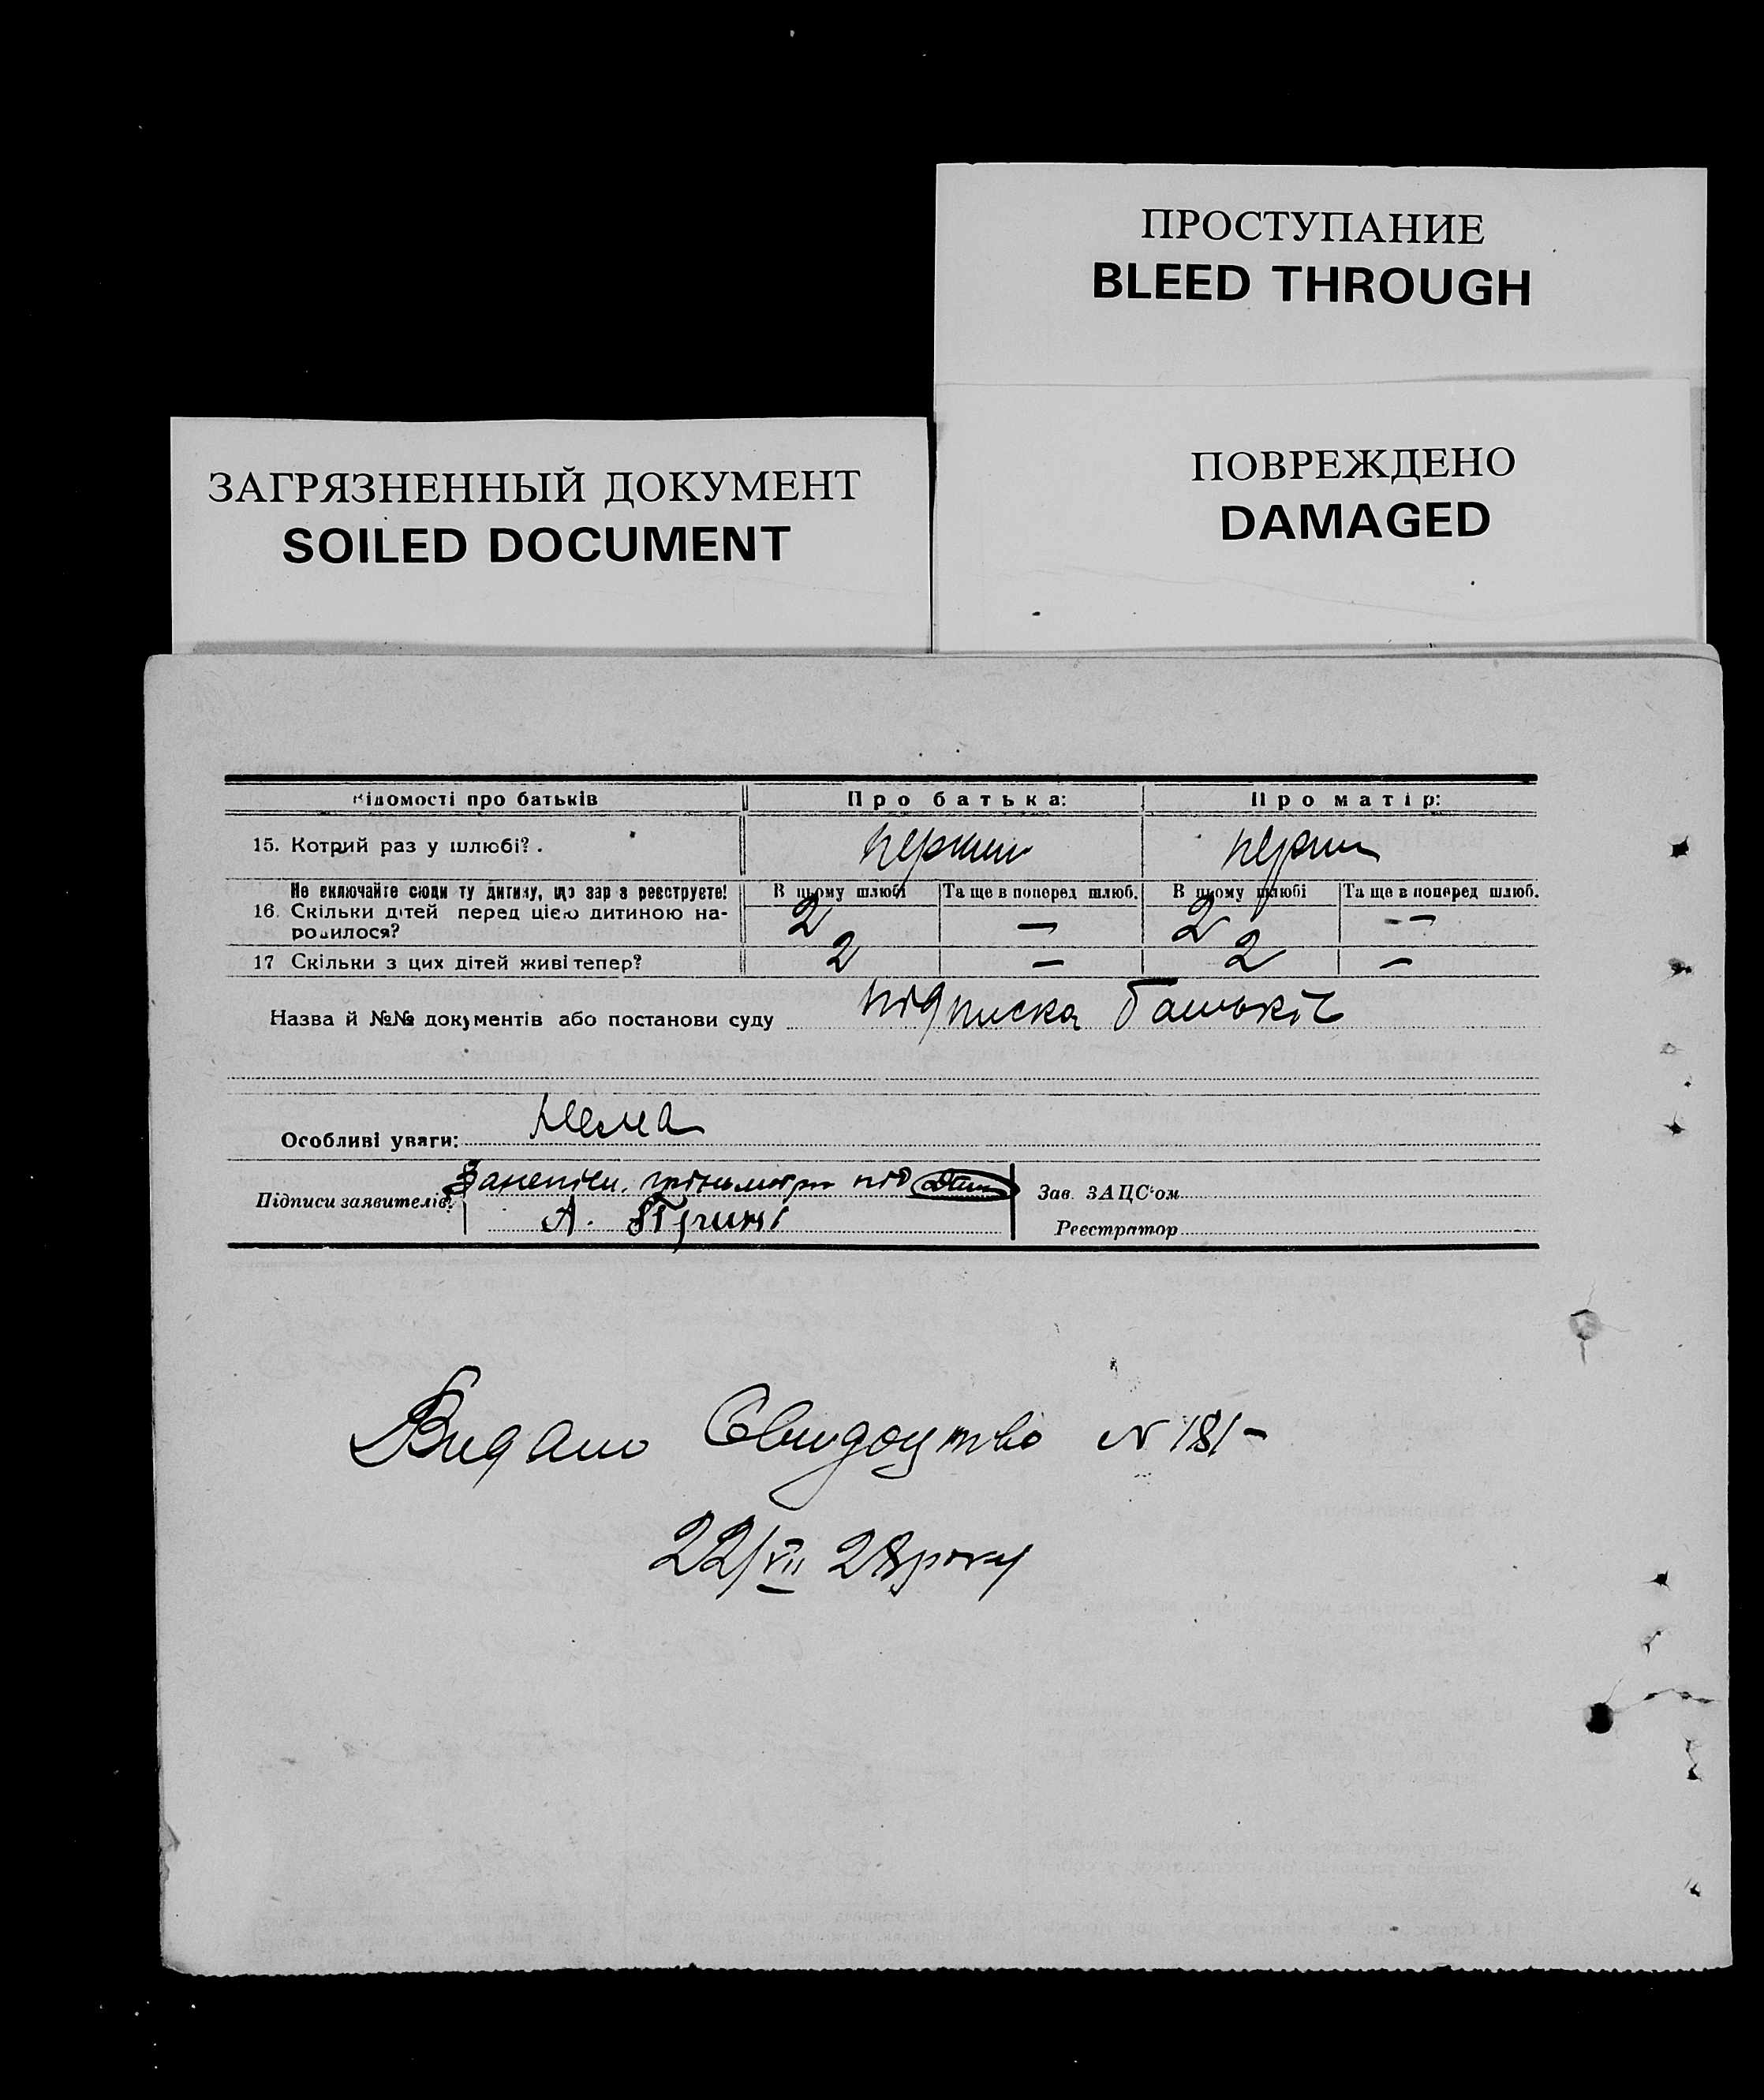 ПРОСТУПАНИЕ
BLEED THROUGH
ЗАГРЯЗНЕННЫЙ ДОКУМЕНТ
SOILED DOCUMENT
ПОВРЕЖДЕНО
DAMAGED
Відомості про батьків Про батька: Про матір:
15. Котрий раз у шлюбі? . перший перш
Не включайте сюди ту дитину, що зараз реєструєте! В цьому шлюбі Та ще в поперед шлюб. В цьому шлюбі Та ще в поперед шлюб.
16. Скільки дітей перед цією дитиною на-
родилося? 2 — 2 —
17 Скільки з цих дітей живі тепер? 2 — 2 —
Назва й №№ документів або постанови суду підписка батьків
Особливі уваги: нема
Підписи заявителів: Зав. ЗАЦС'ом
А. Реєстратор
Видано Свидоцтво N 181-
22/VII 28 року